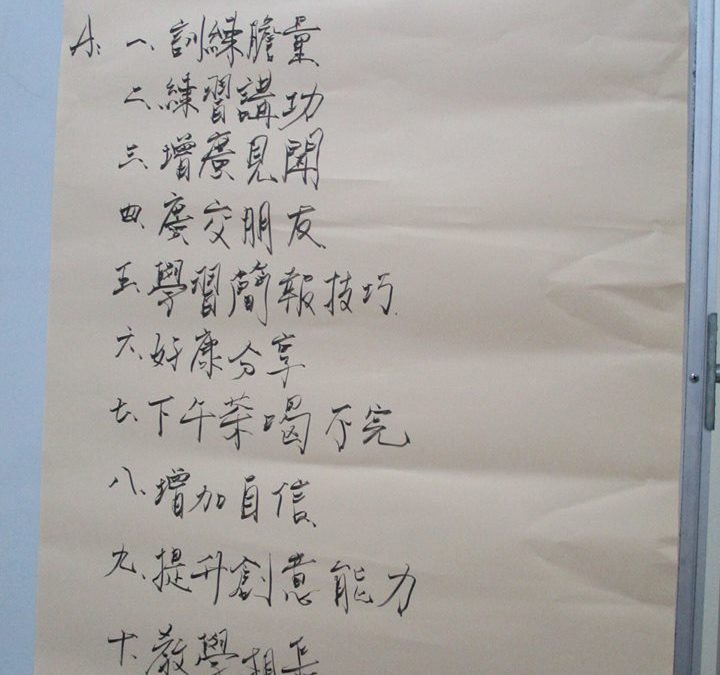 A: 一、訓練膽量
二、練習講功
三、增廣見聞
四、廣交朋友
五、學習簡報技巧
六、好康分享
七、下午茶喝不完
八、增加自信
九、提升創意能力
十、教學相長